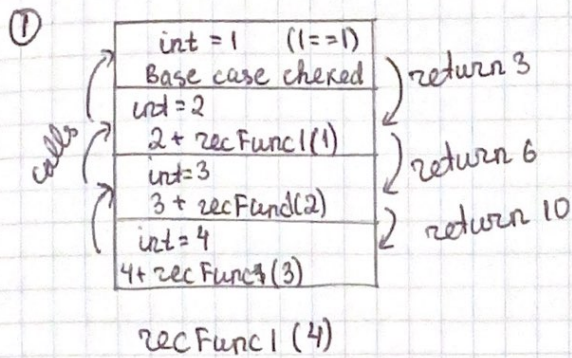 ①
int = 1 (1==1)
Base case cheked
int = 2
2 + recFunc1(1)
int = 3
3 + recFunc1(2)
int = 4
4 + recFunc1(3)
calls
return 3
return 6
return 10
recFunc1(4)